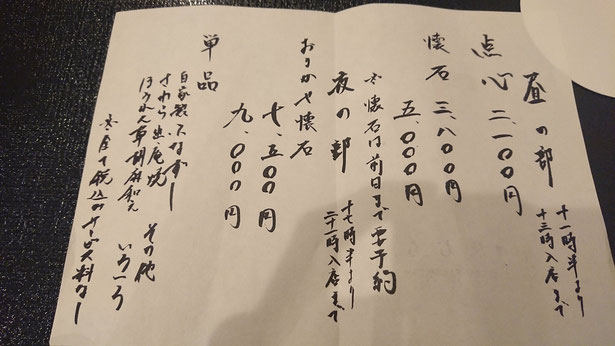 昼の部
十一時半より
十三時入店まで
点心 二、一〇〇円
懐石 三、八〇〇円
五、〇〇〇円
※懐石は前日まで要予約
夜の部
十七時半より
二十一時入店まで
おりかや懐石
十、五〇〇円
九、〇〇〇円
単品
自家製
さわら
焼
ほうれん草胡麻和え
その他
いろいろ
税込みサービス料なし